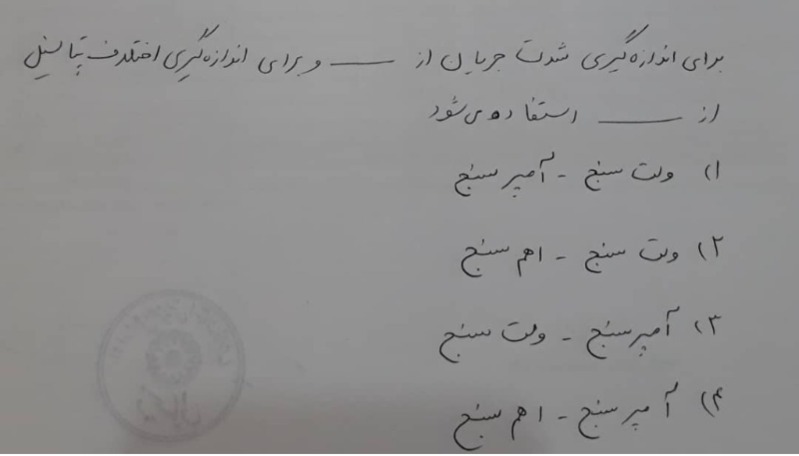 برای اندازه‌گیری شدت جریان از ــــــ و برای اندازه‌گیری اختلاف پتانسیل
از ــــــ استفاده می‌شود
۱) ولت سنج - آمپر سنج
۲) ولت سنج - اهم سنج
۳) آمپر سنج - ولت سنج
۴) آمپر سنج - اهم سنج